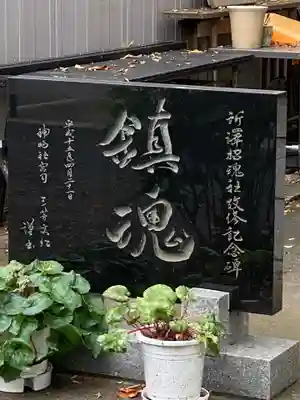 所澤招魂社改修記念碑
鎮魂
平成十五年四月二十一日
神明社宮司
謹書